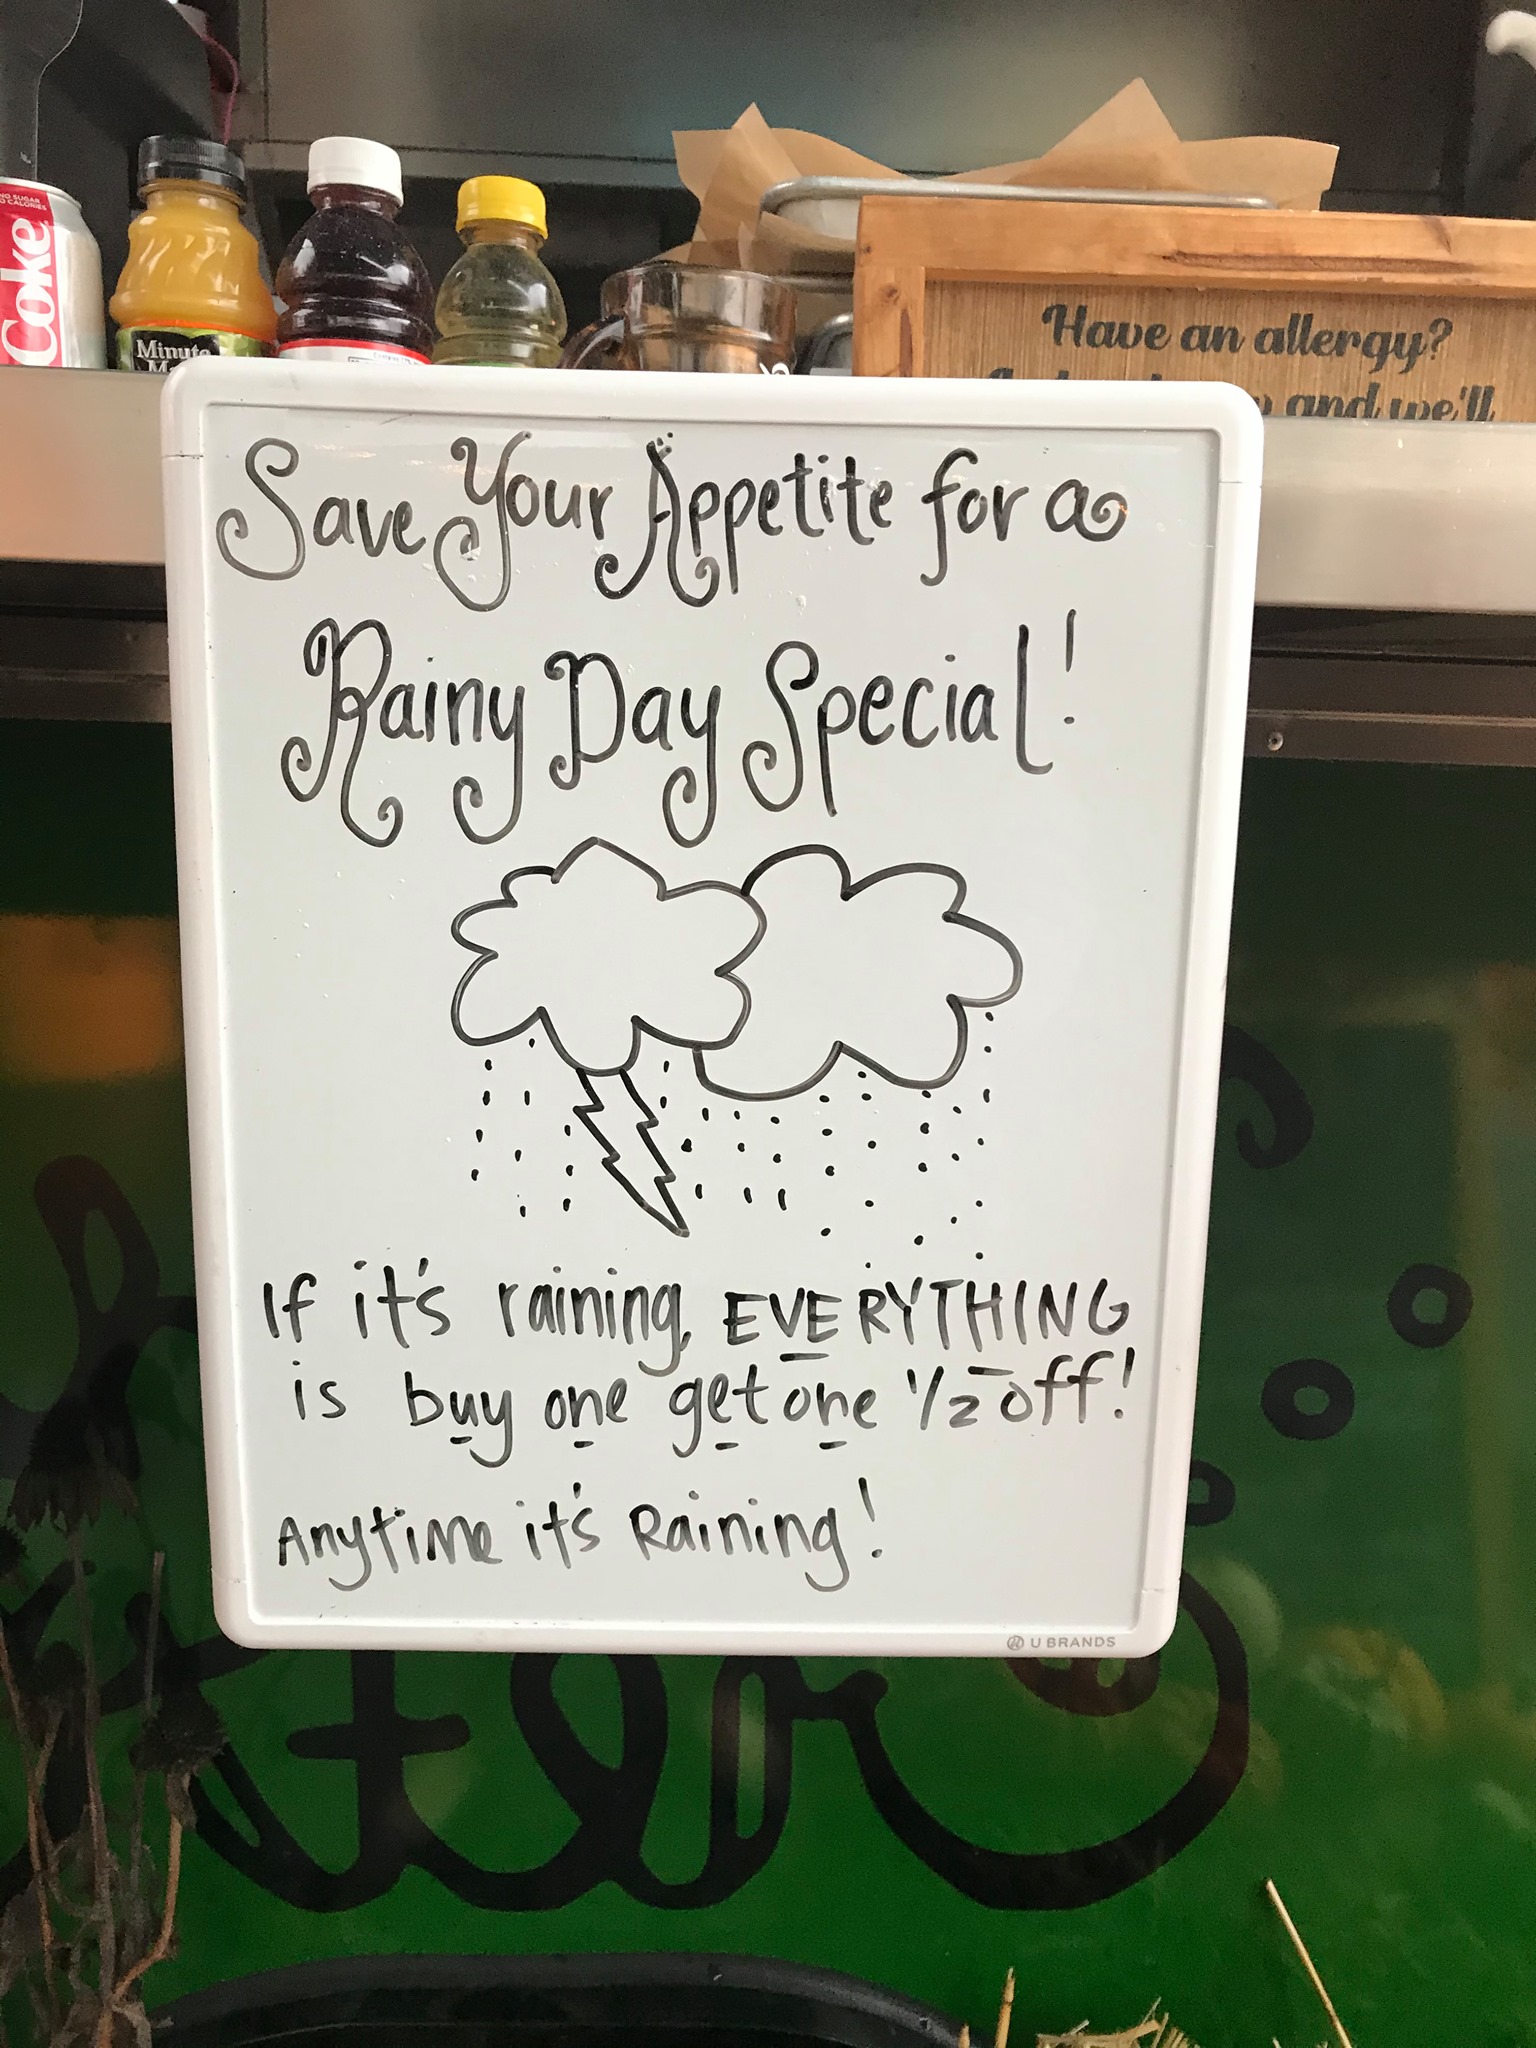 NO SUGAR
NO CALORIES
Coke
Minute
Have an allergy?
and we'll
Save Your Appetite for a
Rainy Day Special!
If it's raining, EVERYTHING
is buy one get one 1/2 off!
Anytime it's Raining!
U BRANDS